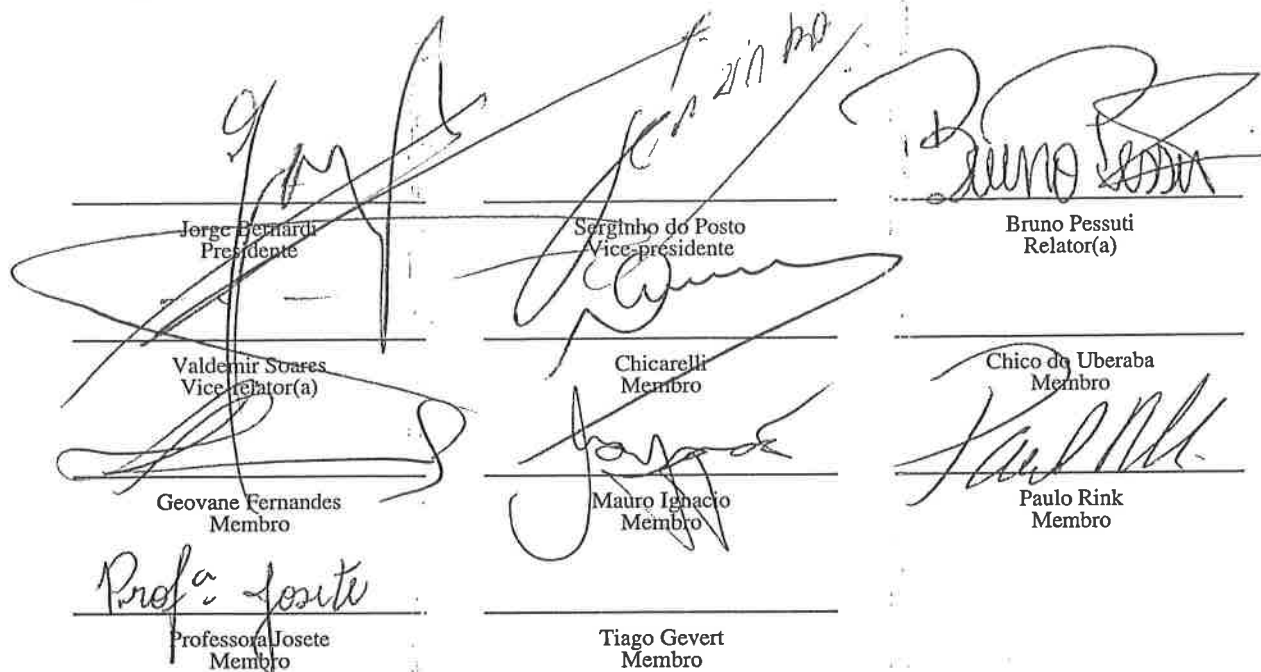 Serginho
Bruno Pessuti
Jorge Bernardi
Presidente
Serginho do Posto
Vice-presidente
Bruno Pessuti
Relator(a)
Valdemir Soares
Vice-relator(a)
Chicarelli
Membro
Chico do Uberaba
Membro
Paulo Rink
Geovane Fernandes
Membro
Mauro Ignacio
Membro
Paulo Rink
Membro
Profª Josete
Professora Josete
Membro
Tiago Gevert
Membro